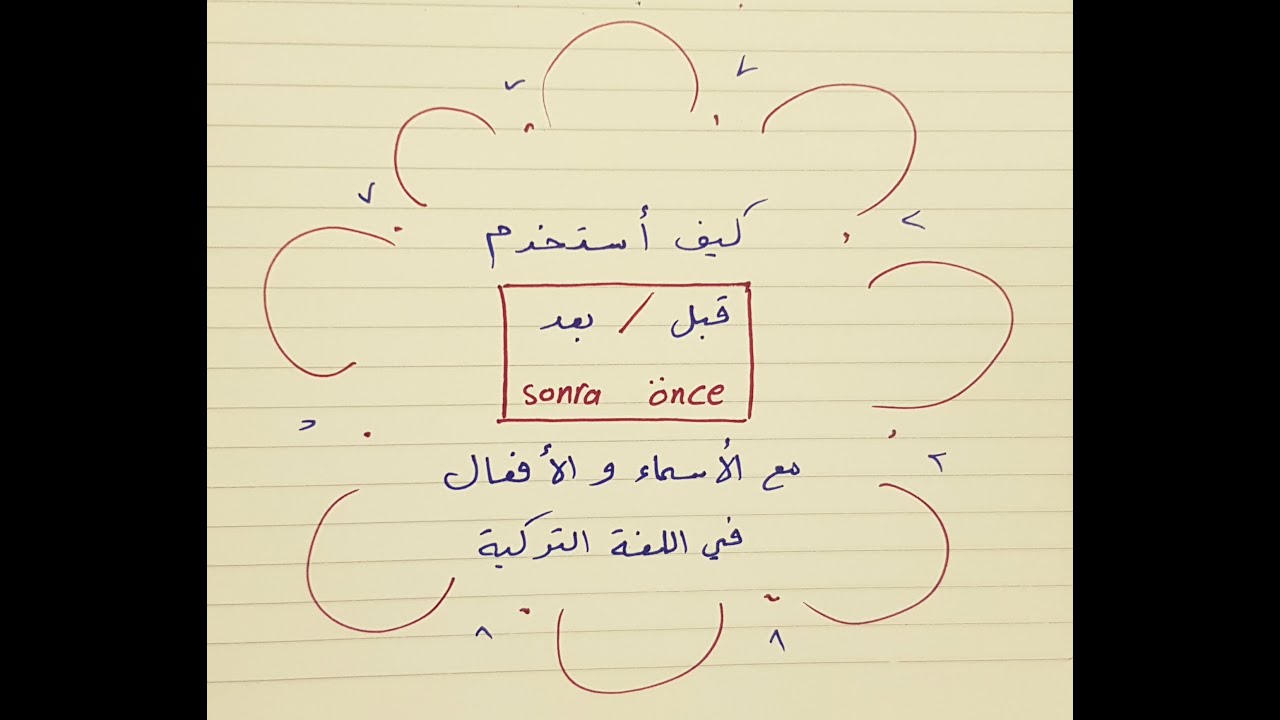 كيف أستخدم
قبل / بعد
sonra önce
مع الأسماء و الأفعال
في اللغة التركية